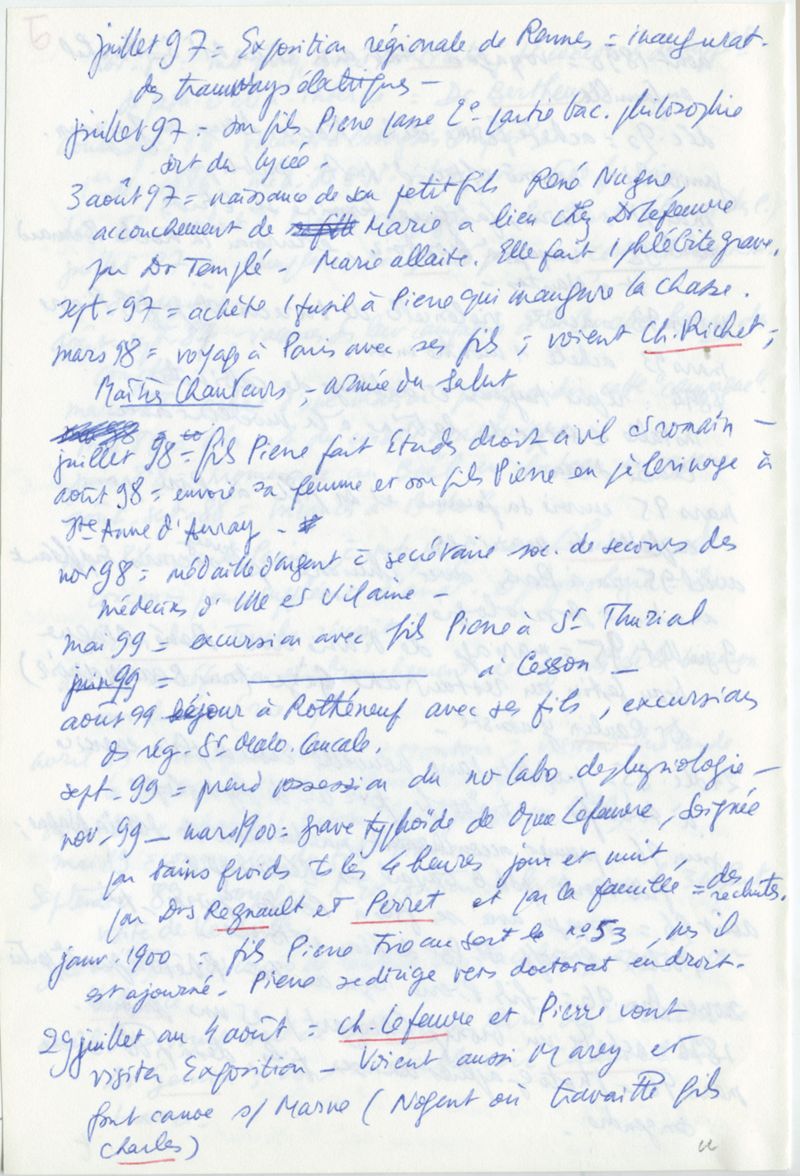 5
juillet 97 = Exposition régionale de Rennes = inaugurat.
des tramways électriques —
juillet 97 = son fils Pierre passe 2e partie bac. philosophie
sort du lycée.
3 août 97 = naissance de son petit fils René Nugue,
accouchement de sa fille Marie a lieu chez Dr Lefeuvre
par Dr Templé - Marie allaite. Elle fait 1 phlébite grave.
sept - 97 = achète 1 fusil à Pierre qui inaugure la chasse.
mars 98 = voyage à Paris avec ses fils ; voient Ch. Richet ;
Maîtres Chanteurs, - armée du Salut
juillet 98 = fils Pierre fait Etude droit civil et romain —
août 98 = envoie sa femme et son fils Pierre en pèlerinage à
Ste Anne d'Auray -
nov 98 = médaille d'argent = secrétaire soc. de secours des
médecins d'Ille et Vilaine -
mai 99 = excursion avec fils Pierre à St Thurial
juin 99 = ——— à Cesson —
août 99 séjour à Rothéneuf avec ses fils, excursions
des rég. St Malo. Cancale,
sept - 99 = prend possession du nv labo. de physiologie —
nov. 99 — mars 1900 = grave typhoïde de Mme Lefeuvre, soignée
par bains froids ttes les 4 heures jour et nuit,
par Drs Regnault et Perret et par la famille = des
rechutes.
janv. 1900 = fils Pierre tire au sort le no 53, mais il
est ajourné - Pierre se dirige vers doctorat en droit -
29 juillet au 4 août = Ch. Lefeuvre et Pierre vont
visiter Exposition - Voient aussi Marey et
font canoe s/ Marne ( Nogent où travaille fils
Charles )